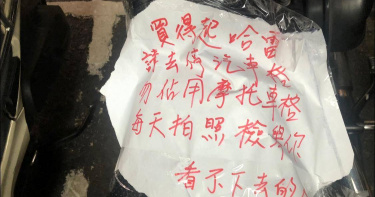 買得起哈雷
請去停汽車格
勿佔用摩托車格
每天拍照檢舉你
看不下去的